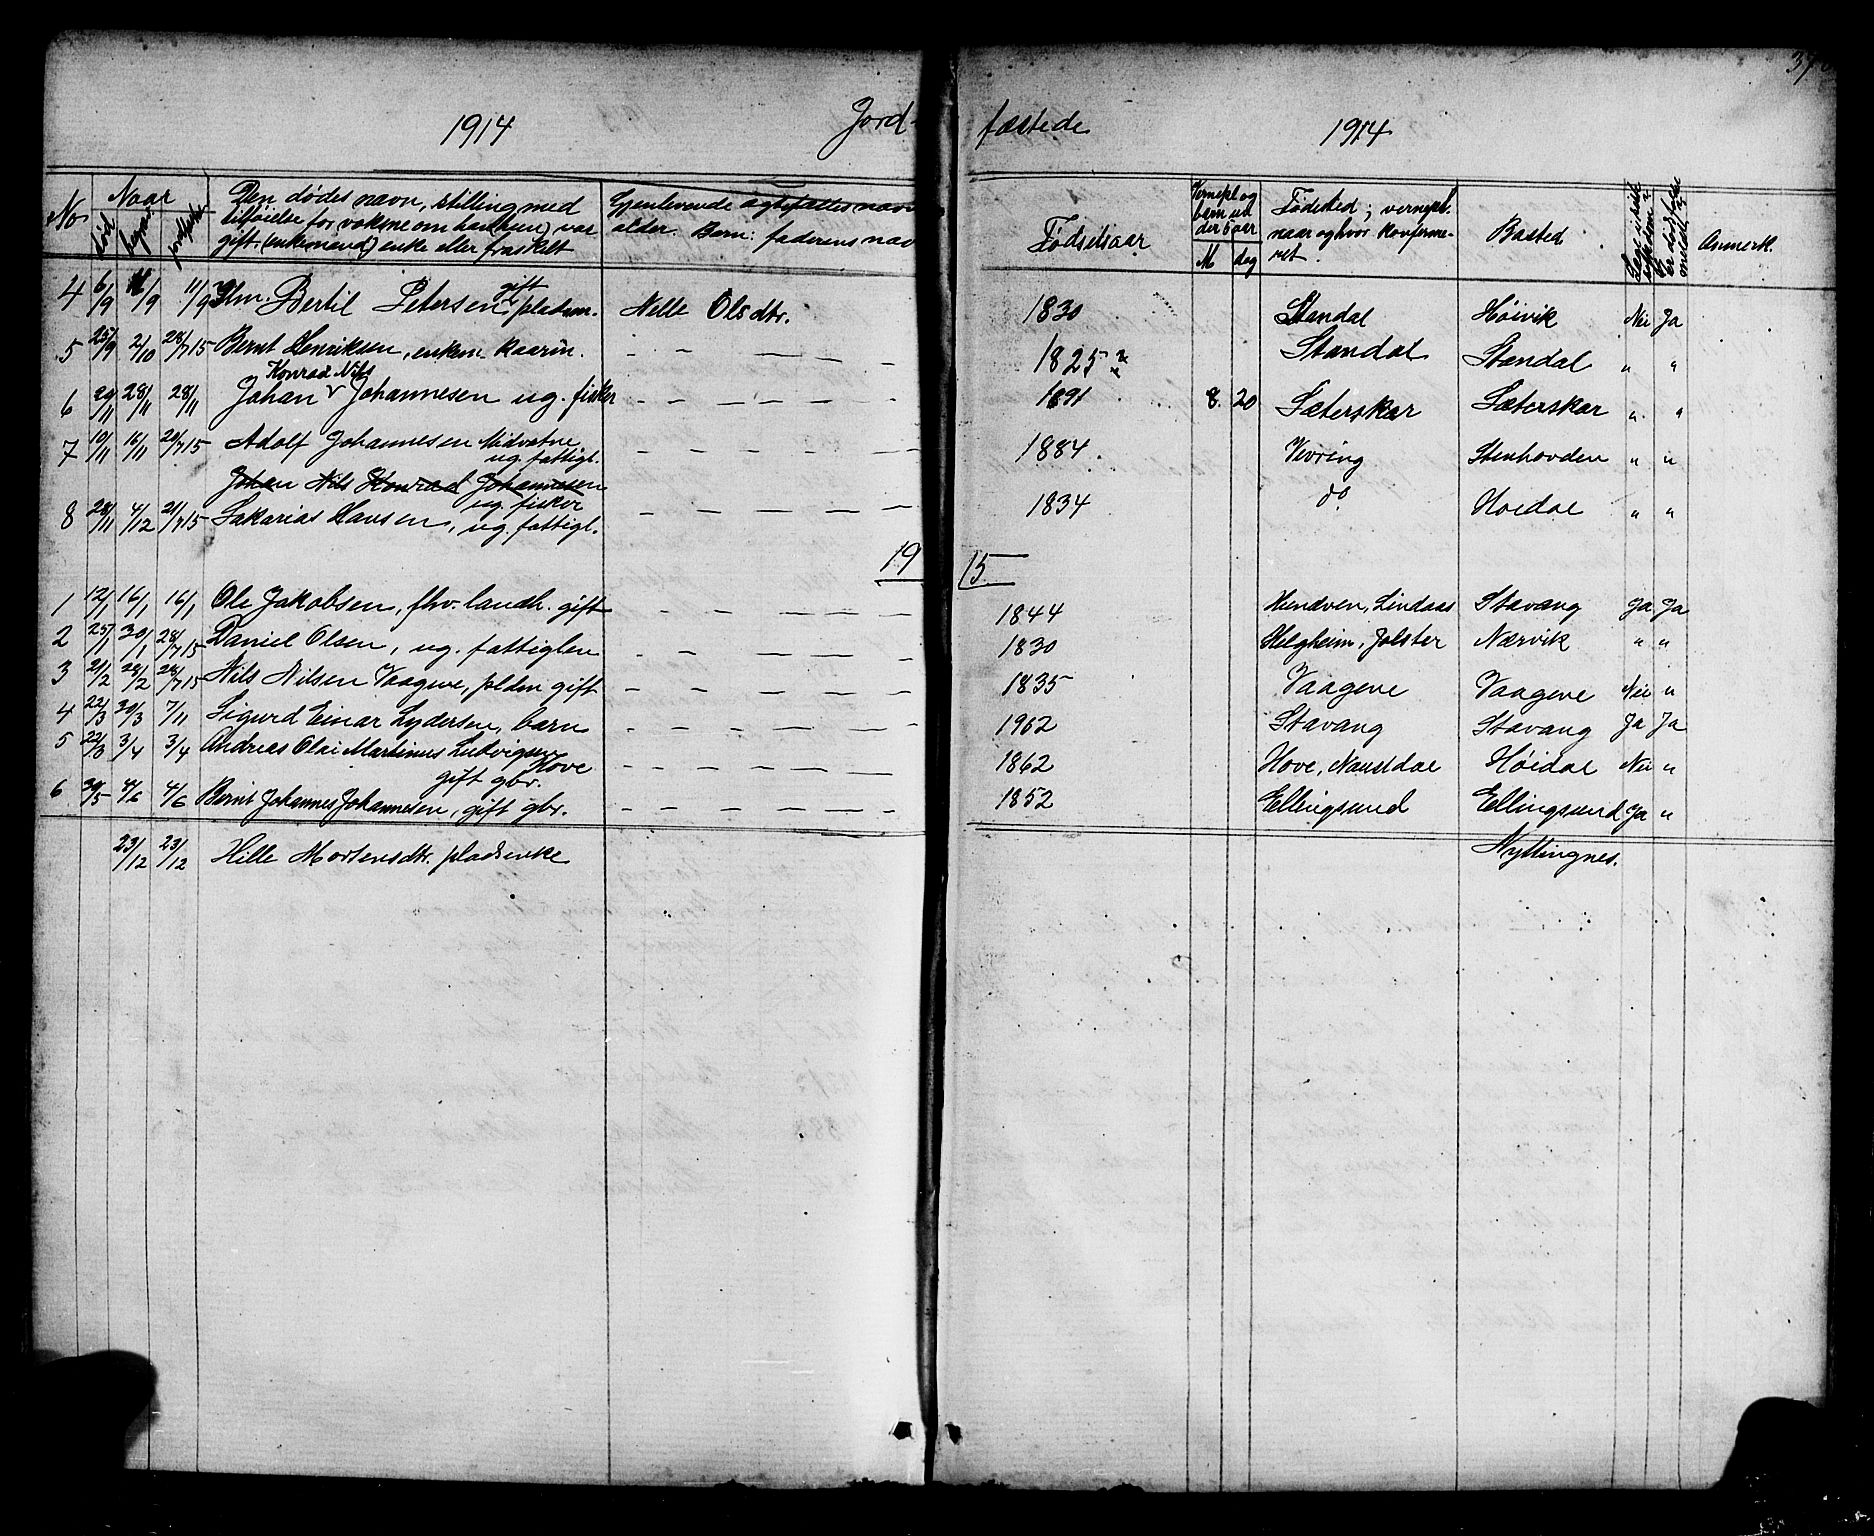 1914 Jord- fæstede 1914
No Naar Den dødes navn, stilling med Gjenlevende ægtefælles navn Fødselsaar Fødested; vernepl. Bosted Anmerk.
død begrav. jordfæstet tilføielse for voksne om han (hun) var alder. Barn: faderens nav M dag naar og hvor konfirme-
gift, (enkemand) enke eller fraskilt ret.
4 6/9 11/9 11/9 Bertil Petersen, gift pladsm. Nelle Olsdtr. 1830 Standal Høivik Nei Ja
5 25/9 2/10 28/7 15 Bernt Henriksen, enkem. kaarm. – – – 1825? Standal Standal " "
Konrad Nils
6 20/11 28/11 28/11 Johan v Johannesen ug. fisker – – – 1891 8. 20 Sæterskar Sæterskar " "
7 10/11 16/11 20/7 15 Adolf Johannesen Midvatne – – – 1884. Vevring Stenhovden " "
ug. fattigl.
Johan Nils Konrad Johannesen
ug. fisker
8 28/11 4/12 21/7 15 Sakarias Hansen, ug. fattigl. – – – 1834 do Høidal " "
19 15
1 12/1 16/1 16/1 Ole Jakobsen, fhv. landh. gift – – – 1844 Hundven, Lindaas Stavang Ja Ja
2 25/1 30/1 28/7 15 Daniel Olsen, ug. fattiglem – – – 1830 Helgheim, Jølster Nærvik " "
3 21/2 28/2 28/7 15 Nils Nilsen Vaagene, pldm gift – – – 1835 Vaagene Vaagene Nei "
4 22/3 30/3 7/11 Sigurd Einar Lydersen, barn – – – 1962 Stavang Stavang Ja Ja
5 22/3 3/4 3/4 Andreas Olai Martinus Ludvigsen – – – 1862 Hove, Naustdal Høidal Nei "
Hove
gift gbr.
6 30/5 4/6 4/6 Bernt Johannes Johannesen, gift gbr. – – – 1852 Ellingsund Ellingsund Ja "
23/12 23/12 Hille Mortensdtr. pladsenke Nyttingnes.